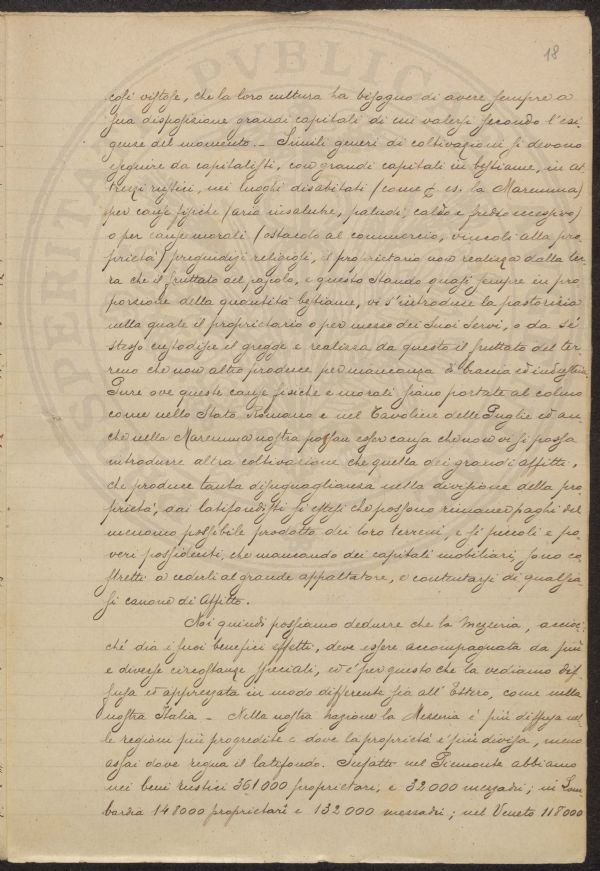 18
così vistose, che la loro cultura ha bisogno di avere sempre a
sua disposizione grandi capitali di cui valersi secondo l'esi
genze del momento. - Simili generi di coltivazioni si devono
eseguire da capitalisti, con grandi capitali in bestiame, in at
trezzi rustici, nei luoghi disabitati (come p es. la Maremma)
per cause fisiche (aria insalubre, paludi, caldo e freddo eccessivo)
o per cause morali (ostacolo al commercio, vincoli alla pro
prietà) pregiudizi religiosi, il proprietario non realizza dalla ter
ra che il fruttato del pascolo, e questo stando quasi sempre in pro
porzione della quantità bestiame, vi s'introduce la pastorizia
nella quale il proprietario o per mezzo dei suoi servi, o da sé
stesso custodisce il gregge e realizza da questo il fruttato del ter
reno che non altro produce per mancanza di braccia ed industria
Pure ove queste cause fisiche e morali siano portate al colmo
come nello Stato Romano e nel Tavoliere delle Puglie ed an
che nella Maremma nostra possan esser causa che non vi si possa
introdurre altra coltivazione che quella dei grandi affitti,
che produce tanta disuguaglianza nella divisione della pro
prietà, dai latifondisti si estesi che possono rimaner paghi del
menomo possibile prodotto dei loro terreni, e si piccoli e po
veri possidenti, che mancando dei capitali mobiliari, sono co
stretti a cederli al grande appaltatore, e contentarsi di qualsia
si canone di Affitto.
Noi quindi possiamo dedurre che la Mezzeria, accioc
ché dia i suoi benefici effetti, deve essere accompagnata da più
e diverse circostanze speciali, ed è per questo che la vediamo dif
fusa ed apprezzata in modo differente sia all'Estero, come nella
nostra Italia - Nella nostra nazione la Mezzeria è più diffusa nel
le regioni più progredite e dove la proprietà è più divisa, meno
assai dove regna il latifondo. Infatti nel Piemonte abbiamo
nei beni rustici 361000 proprietari, e 32000 mezzadri; in Lom
bardia 148000 proprietari e 132000 mezzadri; nel Veneto 118000
PVBLIC